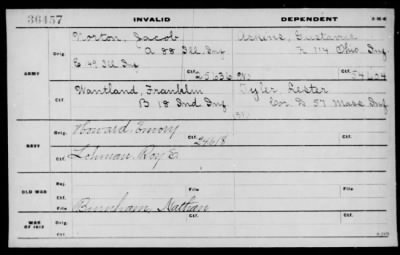 36457 INVALID DEPENDENT
Norton, Jacob
Orig. A 88 Ill. Inf
E 49 Ill Inf
Gustavus
K 114 Ohio Inf
ARMY
Ctf. 25636
Ctf. 54604
Wantland, Franklin
Ctf. B 18 Ind Inf
Tyler, Lester
Cor. D 57 Mass Inf
Howard, Emory
Orig. Ctf. 24618
NAVY
Lehman, Roy E.
Ctf.
OLD WAR
Rej.
Ctf. File
Burnham, Nathan
File
WAR OF 1812
Orig. Ctf. Ctf.